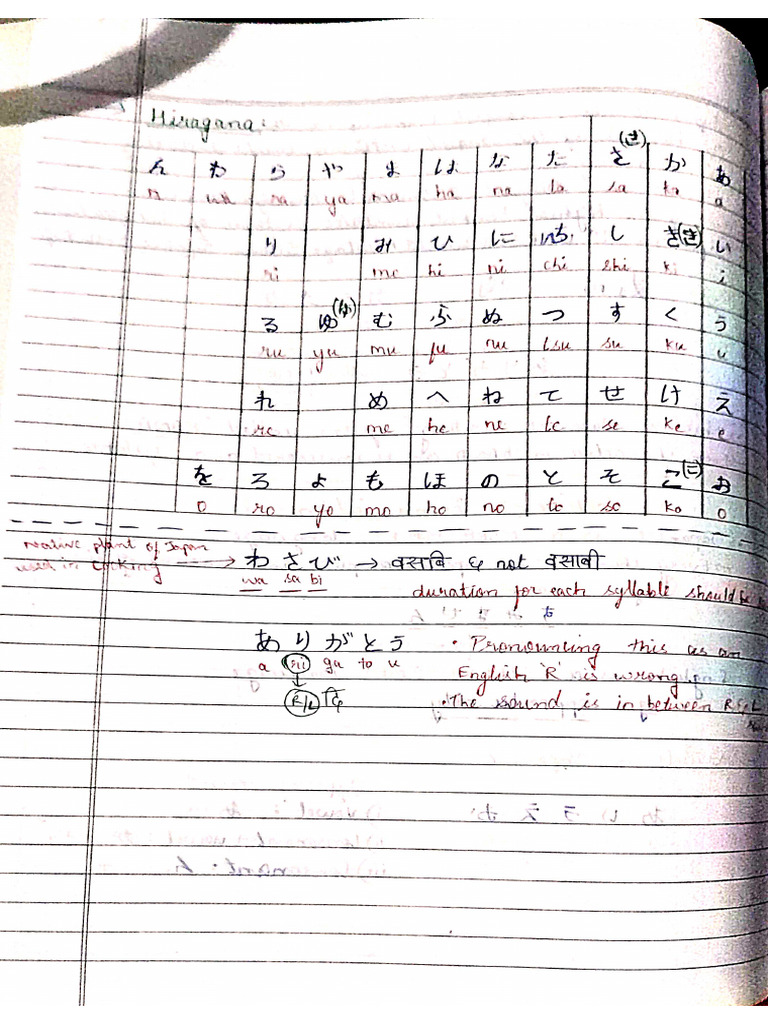 Hiragana:
ん わ ら や ま は な た さ(さ) か あ
n wa ra ya ma ha na ta sa ka a
り み ひ に ち し き(き) い
ri me hi ni chi shi ki i
る ゆ(ゆ) む ふ ぬ つ す く う
ru yu mu fu nu tsu su ku u
れ め へ ね て せ け え
re me he ne te se ke e
を ろ よ も ほ の と そ こ(こ) お
o ro yo mo ho no to so ko o
native plant of Japan
used in cooking → わさび → वसाबि & not वसाबी
wa sa bi duration for each syllable should be
ありがとう • Pronouncing this as an
a ri ga to u English 'R' is wrong
R/L रि • The sound is in between R & L